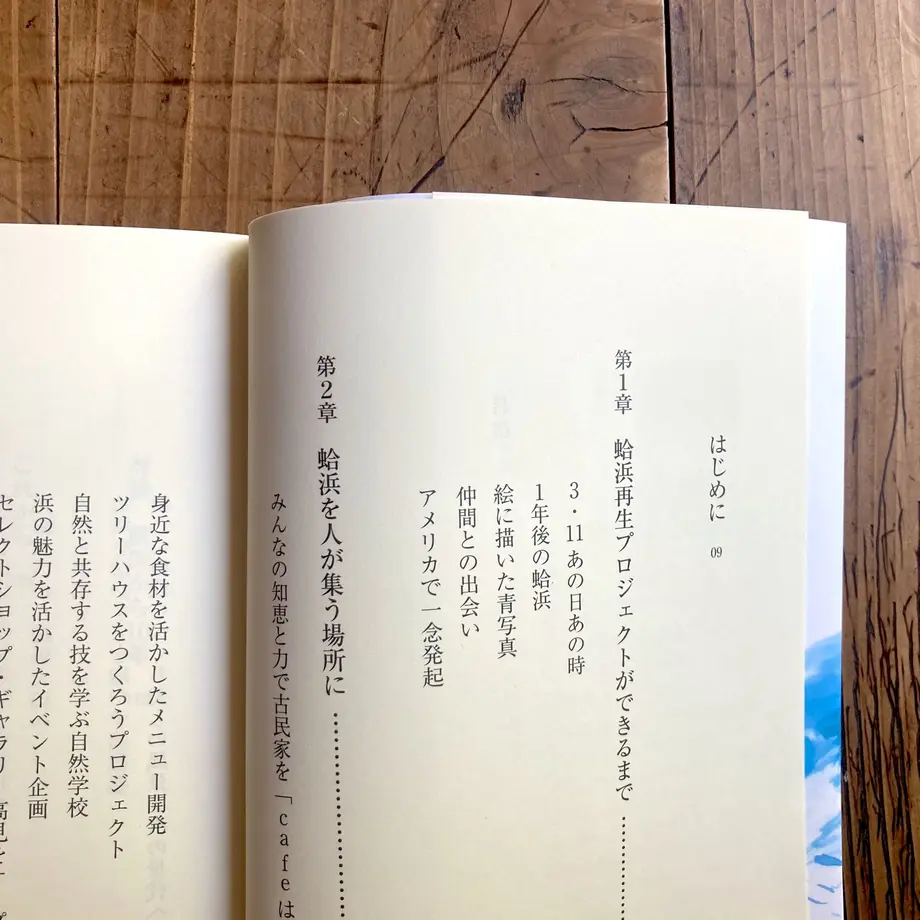 はじめに 09
第1章 蛤浜再生プロジェクトができるまで…………
3・11あの日あの時
1年後の蛤浜
絵に描いた青写真
仲間との出会い
アメリカで一念発起
第2章 蛤浜を人が集う場所に…………
みんなの知恵と力で古民家を「cafeは
身近な食材を活かしたメニュー開発
ツリーハウスをつくろうプロジェクト
自然と共存する技を学ぶ自然学校
浜の魅力を活かしたイベント企画
セレクトショップ・ギャラリー